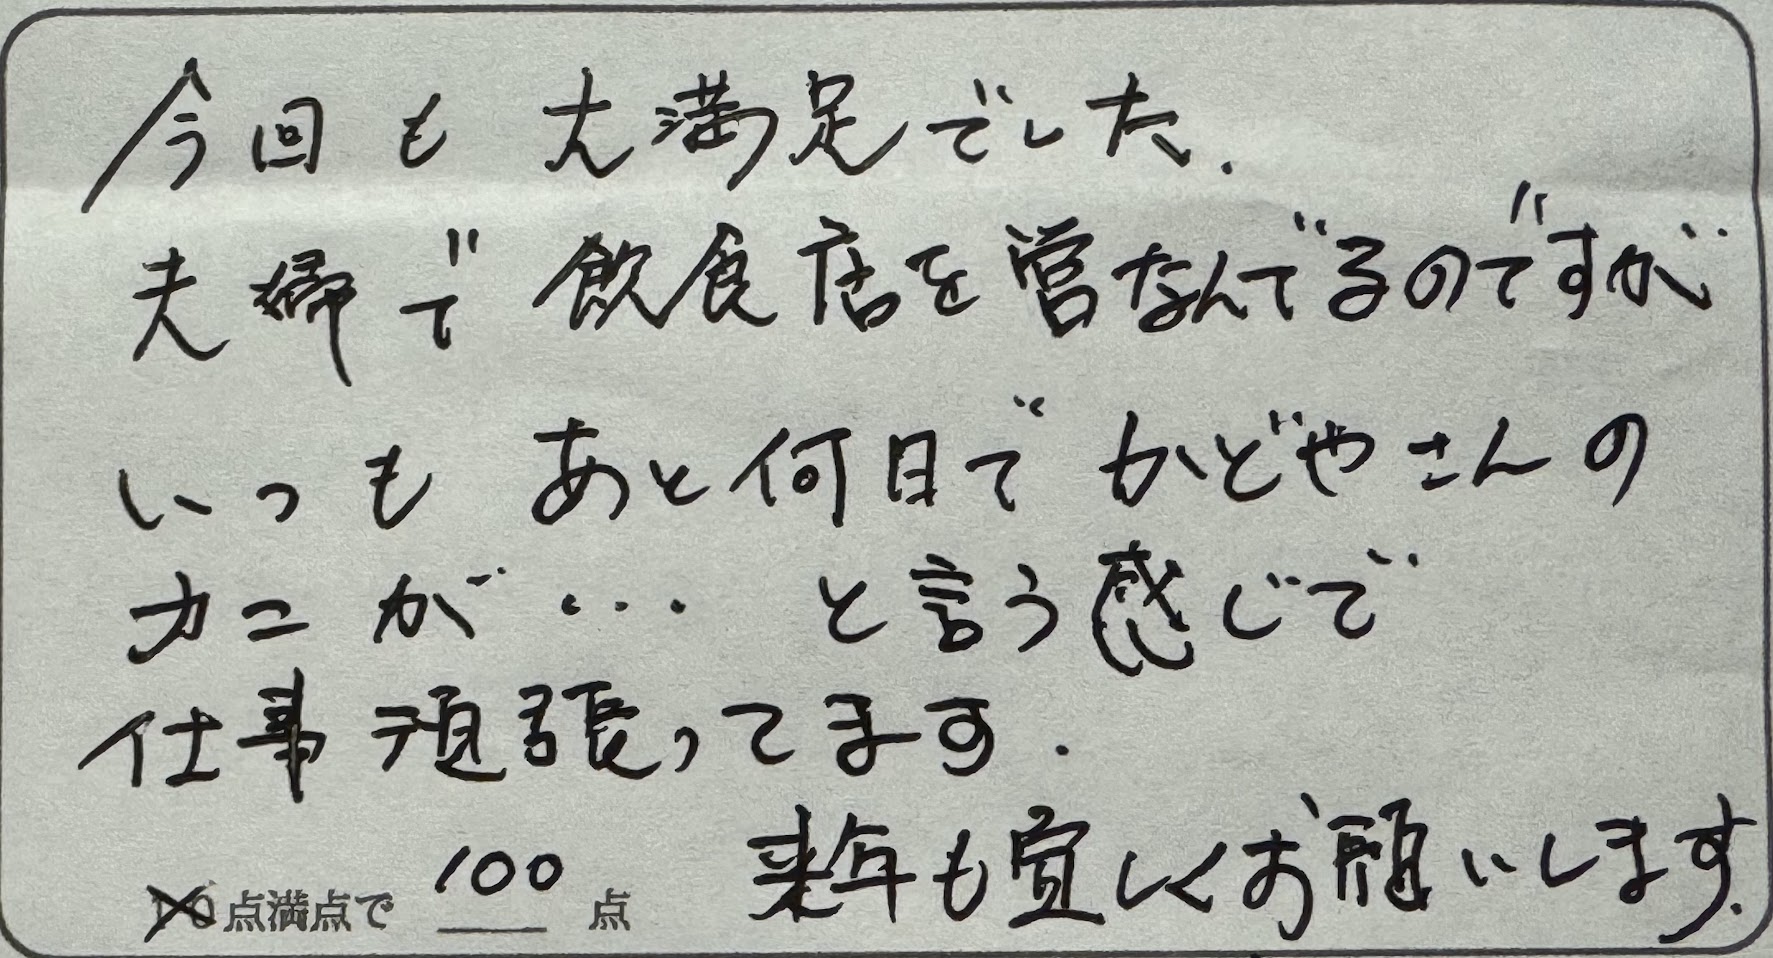 今回も 大満足でした.
夫婦で 飲食店を営なんでるのですが
いつも あと何日で かどやさんの
カニが… と言う感じで
仕事 頑張ってます.
来年も宜しくお願いします.
10点満点で 100 点